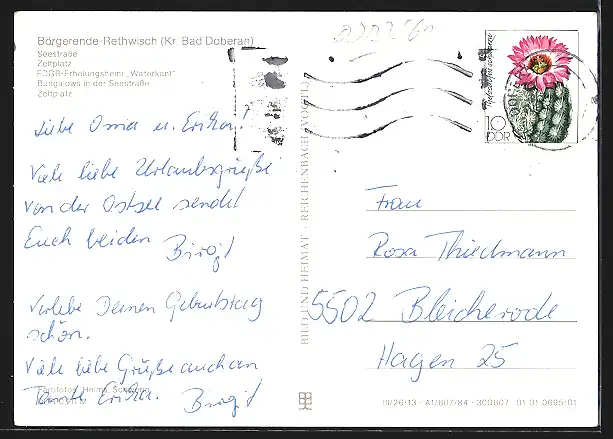 Börgerende-Rethwisch (Kr. Bad Doberan)
Seestraße
Zeltplatz
FDGB-Erholungsheim „Waterkant"
Bungalows in der Seestraße
Zeltplatz
Liebe Oma u. Erika.
Viele liebe Urlaubsgrüße
von der Ostsee sendet
Euch beiden
Birgit
Verlebe Deinen Geburtstag
schön.
Viele liebe Grüße auch an
Tante Erika. Birgit
Farbfotos: Heims,
BILD UND HEIMAT · REICHENBACH (VOGTL.)
10
DDR
Frau
Rosa Thiedmann
5502 Bleicherode
Hagen 25
III/26/13 · A1/607/84 · 300607 01 01 0695/01